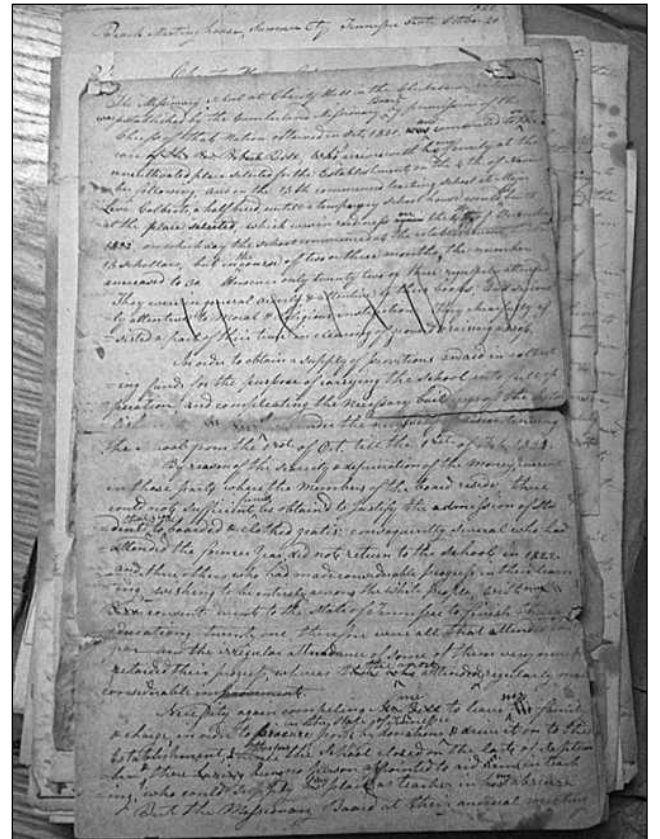 Beach Meetinghouse, Sumner Cty Tennessee State October 20
The Missionary School at Charity Hall in the Chickasaw
was established by the Cumberland Missionary Board by permission of the
Chiefs of that Nation obtained in Oct. 1820, and committed to the
care of the Rev Robert Bell, who arrived with his family at the
uncultivated place selected for the Establishment on the 4th of
ber following, and on the 13th commenced teaching school at Major
Levi Colberts, a half breed, until a temporary school house would be built
at the place selected, which was in readiness on the of December
on which day the school commenced at the establishment
15 schollars, but in the course of two or three months, the number
increased to 30. However only twenty two or three regularly attended
They were in general orderly & attentive to their books. And
ly attentive to Moral & religious instruction. They chearfully as-
-sisted a part of their time in clearing ground & raising a crop.
In order to obtain a supply of provisions and in collect
-ing funds for the purpose of carrying the school into full op
peration and compleating the necessary buildings of the
under the necessity of discontinuing
the school from the of Oct. till the 1st of Feb.
By reason of the scarcity & depreciation of the Money current
in those parts where the members of the board reside, there
could not sufficient funds be obtained to justify the admission of Stu
dents to be boarded & clothed gratis: consequently several who had
attended the former year did not return to the school in 1822
and three others who had made considerable progress in their learn
ing, wishing to be entirely among the white people, with
consent went to the State of Tennessee to finish their
educations, twenty one therefore were all that attended
year and the irregular attendance of some of them very much
retarded their progress, whereas those who attended regularly made
considerable improvement.
Necessity again compeling me to leave my family
& charge, in order to procure in the State of Tennessee donations & drive it on to the
establishment, therefore the School closed on the last of Septem
ber & there being no person appointed to aid in teach
ing, who could supply place as teacher in my absence
But the Missionary Board at their annual meeting